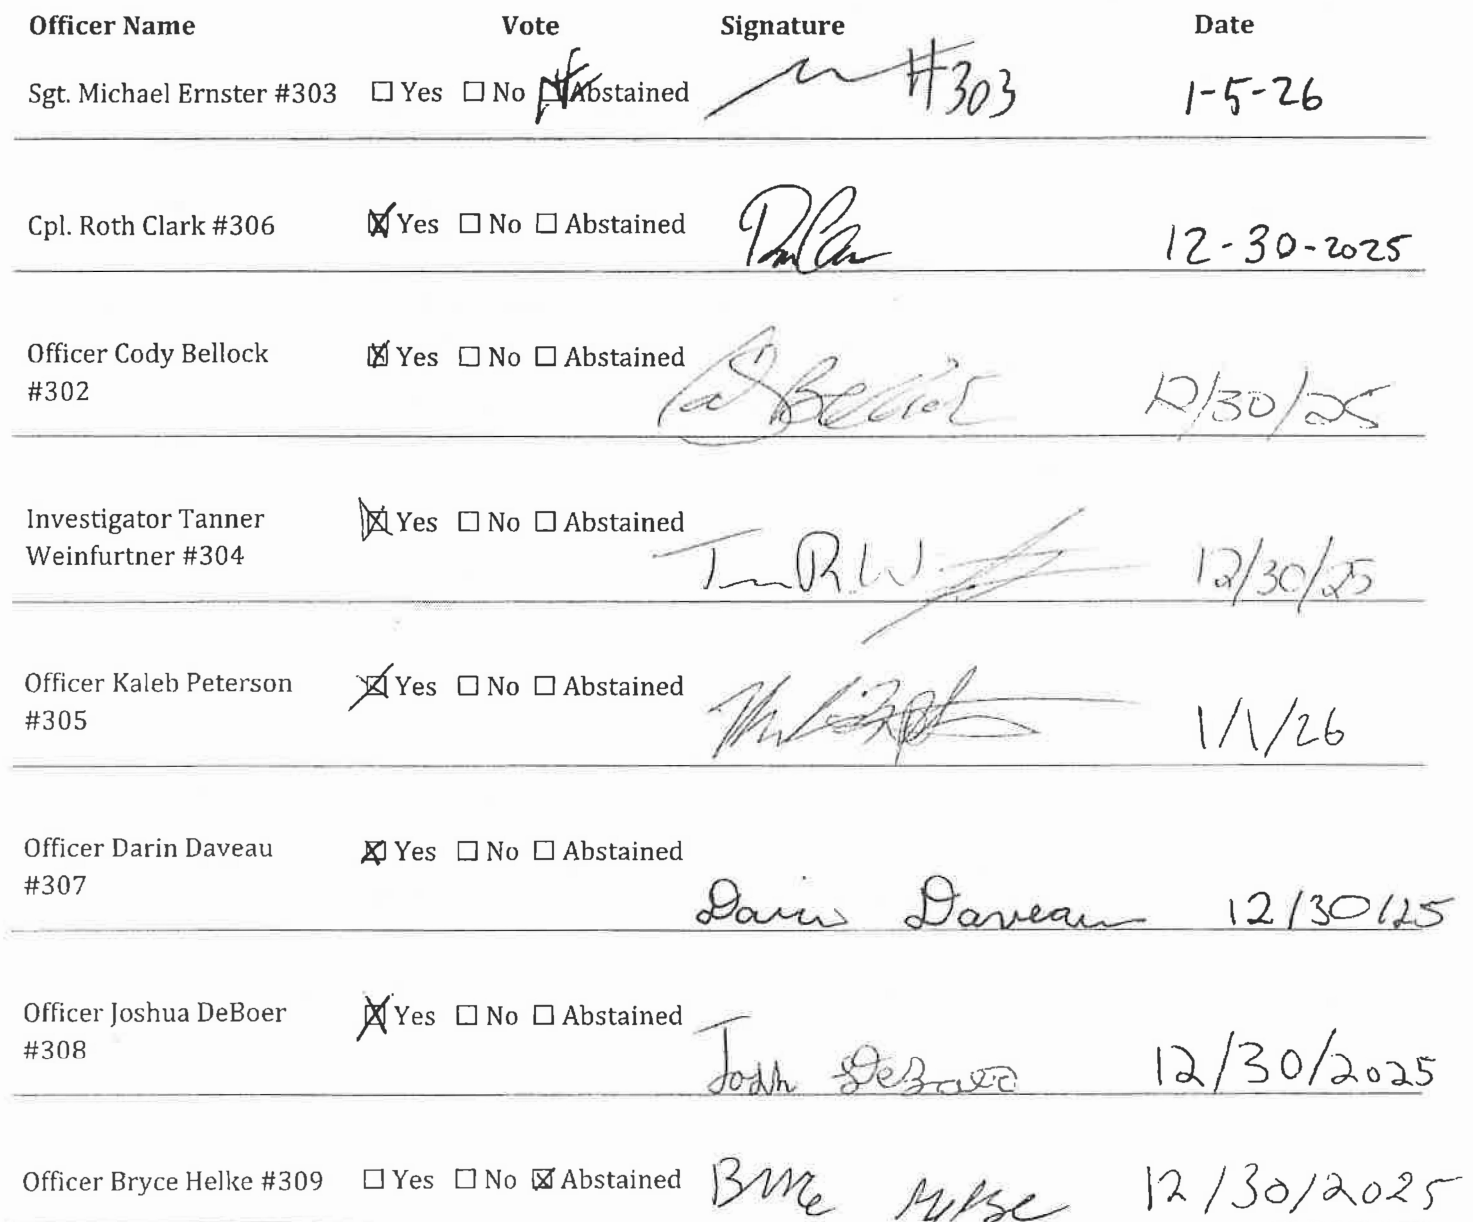 Officer Name Vote Signature Date
Sgt. Michael Ernster #303 ☐ Yes ☐ No ☒ Abstained #303 1-5-26
Cpl. Roth Clark #306 ☒ Yes ☐ No ☐ Abstained 12-30-2025
Officer Cody Bellock ☒ Yes ☐ No ☐ Abstained
#302 12/30/25
Investigator Tanner ☒ Yes ☐ No ☐ Abstained
Weinfurtner #304 12/30/25
Officer Kaleb Peterson ☒ Yes ☐ No ☐ Abstained
#305 1/1/26
Officer Darin Daveau ☒ Yes ☐ No ☐ Abstained
#307 Darin Daveau 12/30/25
Officer Joshua DeBoer ☒ Yes ☐ No ☐ Abstained
#308 Josh DeBoer 12/30/2025
Officer Bryce Helke #309 ☐ Yes ☐ No ☒ Abstained 12/30/2025